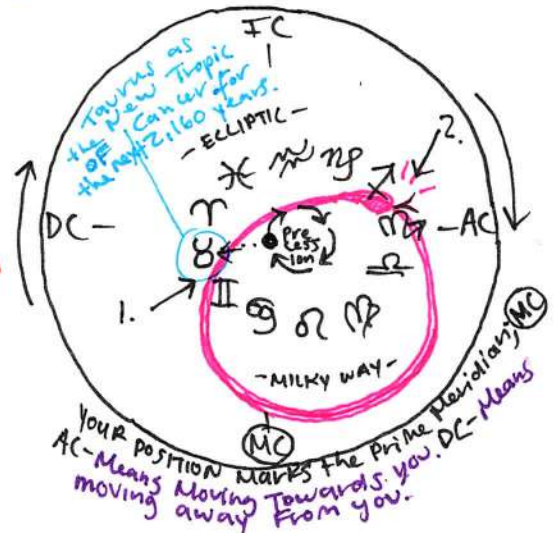 IC
Taurus as
the New Tropic
OF Cancer for
the next 2,160 years.
-ECLIPTIC-
2.
♓ ♒ ♑
♈ ♐
DC-
♉
Pre
cess
ion
♏ -AC
1.
♊ ♎
♋ ♌ ♍
-MILKY WAY-
MC
MC
YOUR POSITION Marks the Prime Meridian;
AC-Means Moving Towards you. DC-Means
moving away From you.